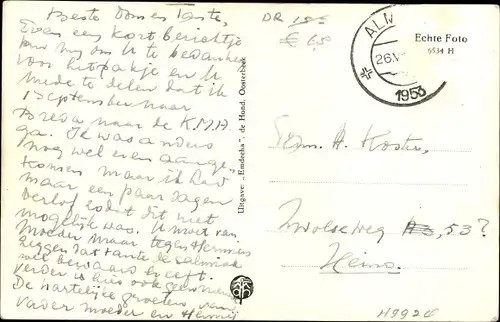 Beste Oom en Tante,
Even een kort berichtje
om U te bedanken
voor het pakje en U
mede te delen dat ik
1 September naar
Breda naar de K.M.A.
ga. Ik was anders
nog wel even aange-
komen maar ik had
maar een paar dagen
verlof zodat dit niet
mogelijk was. U moet van
Moeder maar tegen Hermien
zeggen dat tante de
met bewaard heeft.
verder is hier ook
De hartelijke groeten van
vader moeder en
DR
€ 6,5
AL
26.V
1953
Echte Foto
6534 H
Uitgave: „Emdeeha", de Hand, Oosterbeek
Fam. A. Koster,
Zwolseweg 53?
Heino.
H9920